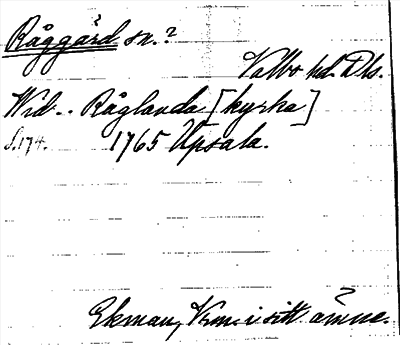 Råggärd sn.?
Valbo hd. Dls.
Wid.. Råglanda [kyrka]
s. 174. 1765 Upsala.
Ekman, Km. i sitt ämne.